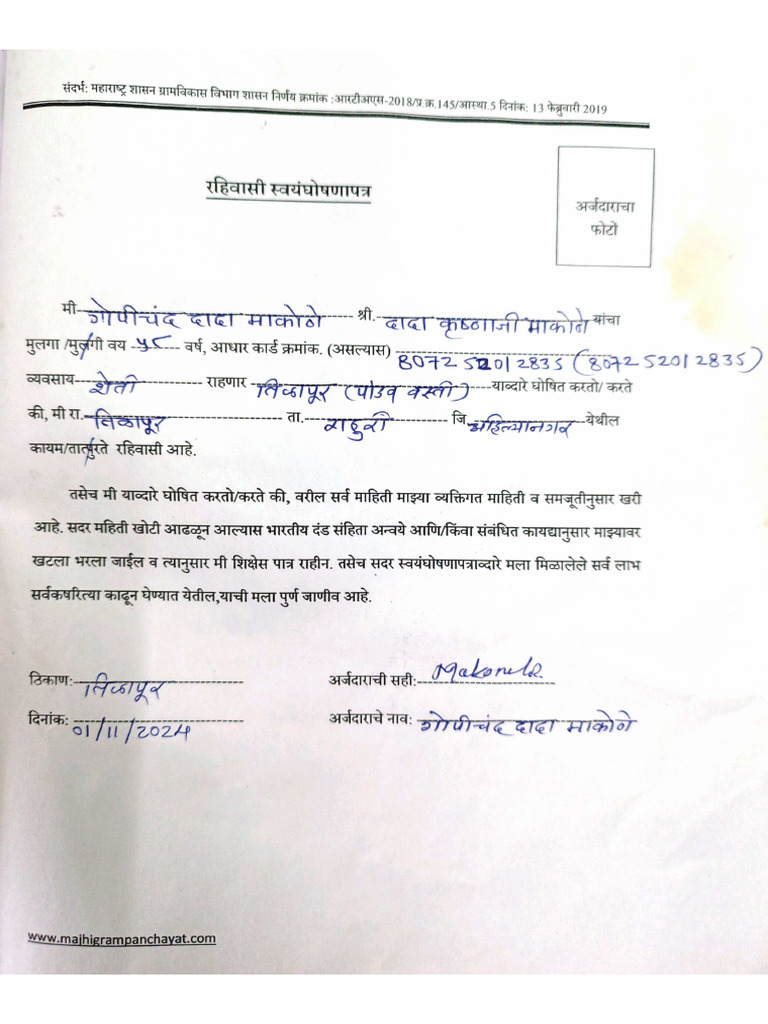 संदर्भ: महाराष्ट्र शासन ग्रामविकास विभाग शासन निर्णय क्रमांक :आरटीअएस-2018/प्र.क्र.145/आस्था.5 दिनांक: 13 फेब्रुवारी 2019
रहिवासी स्वयंघोषणापत्र
अर्जदाराचा
फोटो
मी गोपीचंद दादा माकोणे श्री. दादा कृष्णाजी माकोणे यांचा
मुलगा /मुलगी वय ५८ वर्ष, आधार कार्ड क्रमांक. (असल्यास) 8072 52012835 (8072 52012835)
व्यवसाय शेती राहणार तिळापूर (पाउव वस्ती) याव्दारे घोषित करतो/ करते
की, मी रा. तिळापूर ता. राहुरी जि. अहिल्यानगर येथील
कायम/तात्पुरते रहिवासी आहे.
तसेच मी याव्दारे घोषित करतो/करते की, वरील सर्व माहिती माझ्या व्यक्तिगत माहिती व समजूतीनुसार खरी
आहे. सदर महिती खोटी आढळून आल्यास भारतीय दंड संहिता अन्वये आणि/किंवा संबंधित कायद्यानुसार माझ्यावर
खटला भरला जाईल व त्यानुसार मी शिक्षेस पात्र राहीन. तसेच सदर स्वयंघोषणापत्राव्दारे मला मिळालेले सर्व लाभ
सर्वकषरित्या काढून घेण्यात येतील,याची मला पुर्ण जाणीव आहे.
ठिकाण: तिळापूर अर्जदाराची सही:
दिनांक: 01/11/2024 अर्जदाराचे नाव: गोपीचंद दादा माकोणे
www.majhigrampanchayat.com